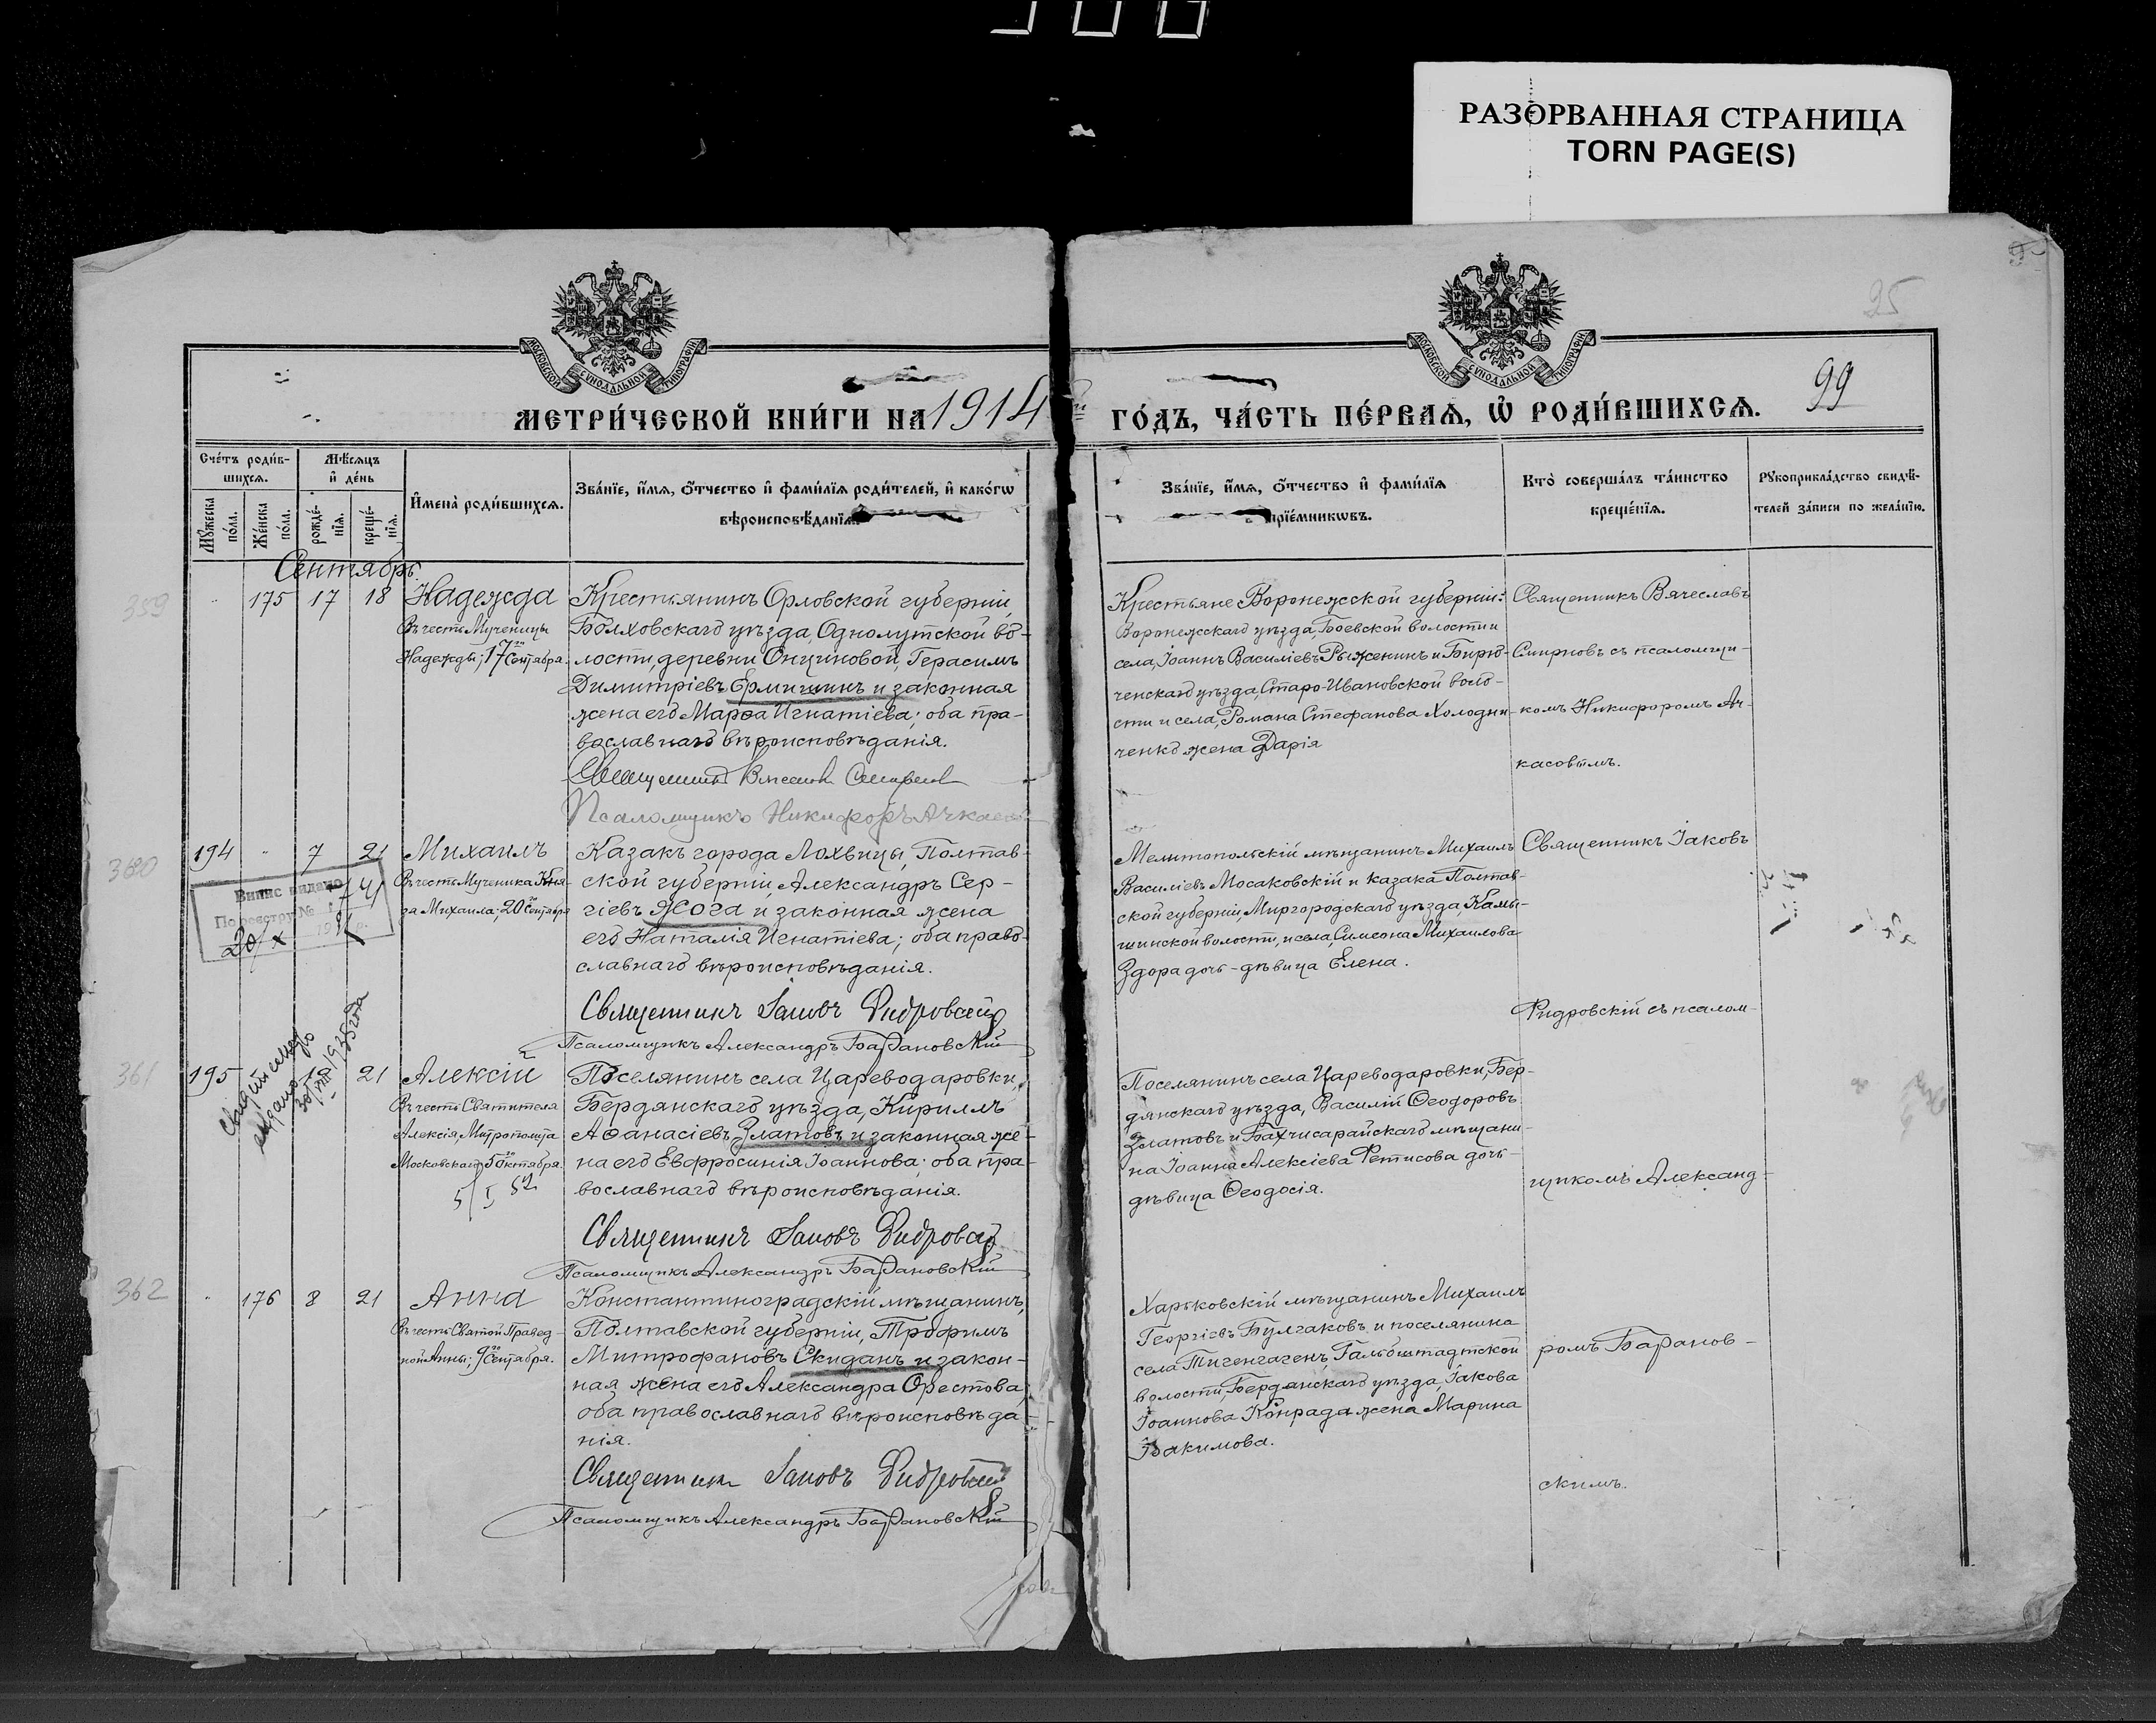 РАЗОРВАННАЯ СТРАНИЦА
TORN PAGE(S)
95
99
МОСКОВСКОЙ СѴНОДАЛЬНОЙ ТИПОГРАФІИ
МОСКОВСКОЙ СѴНОДАЛЬНОЙ ТИПОГРАФІИ
МЕТРИ́ЧЕСКОЙ КНИ́ГИ НА 1914 й ГО́ДЪ, ЧА́СТЬ ПЕ́РВАѦ, Ѡ҆ РОДИ́ВШИХСѦ.
Сче́тъ роди́в-
шихсѧ.
Мѣ́сѧцъ
и҆ де́нь
Мꙋ́жеска
по́ла.
Же́нска
по́ла.
рожде́-
нїѧ.
креще́-
нїѧ.
И҆мена̀ роди́вшихсѧ.
Зва́нїе, и҆́мѧ, ѻ҆́тчество и҆ фами́лїѧ роди́телей, и҆ како́гѡ
вѣроисповѣ́данїѧ.
Зва́нїе, и҆́мѧ, ѻ҆́тчество и҆ фами́лїѧ
прїе́мникѡвъ.
Кто̀ соверша́лъ та́инство
креще́нїѧ.
Рꙋкоприкла́дство свидѣ́-
телей за́писи по жела́нїю.
Сентябрь.
359
175 17 18 Надежда
Въ честь Мученицы
Надежды; 17го Сентября.
Крестьянинъ Орловской губерніи,
Болховскаго уѣзда, Однолутской во-
лости, деревни Онуиновой, Герасимъ
Димитріевъ Ермишинъ и законная
жена его Марѳа Игнатіева; оба пра-
вославнаго вѣроисповѣданія.
Псаломщикъ Никифоръ Ачкасовъ
Крестьяне Воронежской губерніи:
Воронежскаго уѣзда, Боевской волости и
села, Іоаннъ Василіевъ Рыженинъ и Бирю-
ченскаго уѣзда, Старо-Ивановской воло-
сти и села, Романа Стефанова Холодни-
ченко жена Дарія
Священникъ Вячеславъ
Смирновъ съ псаломщи-
комъ Никифоромъ Ач-
касовымъ.
360
194 7 21 Михаилъ
Въ честь Мученика Кня-
зя Михаила; 20го Сентября
Випис видано
По реестру №
20/X
Казакъ города Лохвицы, Полтав-
ской губерніи, Александръ Сер-
гіевъ Жога и законная жена
его Наталія Игнатіева; оба право-
славнаго вѣроисповѣданія.
Священникъ Іаковъ Ридровскій
Псаломщикъ Александръ Барановскій
Мелитопольскій мѣщанинъ Михаилъ
Василіевъ Мосаковскій и казака Полтав-
ской губерніи, Миргородскаго уѣзда, Камы-
шинской волости, и села, Симеона Михаилова
Здора дочь-дѣвица Елена.
Священникъ Іаковъ
Ридровскій съ псалом-
361
195 21 Алексій
Въ честь Святителя
Алексія, Митрополита
Московскаго; 5го Октября.
1935 года
Поселянинъ села Цареводаровки,
Бердянскаго уѣзда, Кириллъ
Аѳанасіевъ Златовъ и законная же-
на его Евфросинія Іоаннова; оба пра-
вославнаго вѣроисповѣданія.
Священникъ Іаковъ Ридровскій
Псаломщикъ Александръ Барановскій
Поселянинъ села Цареводаровки, Бер-
дянскаго уѣзда, Василій Ѳеодоровъ
Златовъ и Бахчисарайскаго мѣщани-
на Іоанна Алексіева Фетисова дочь-
дѣвица Ѳеодосія.
щикомъ Александ-
362
176 8 21 Анна
Въ честь Святой Правед-
ной Анны; 9го Сентября.
Константиноградскій мѣщанинъ,
Полтавской губерніи, Трофимъ
Митрофановъ Скиданъ и закон-
ная жена его Александра Орестова;
оба православнаго вѣроисповѣда-
нія.
Священникъ Іаковъ Ридровскій
Псаломщикъ Александръ Барановскій
Харьковскій мѣщанинъ Михаилъ
Георгіевъ Булгаковъ и поселянина
села Тигенгагенъ, Гальбштадтской
волости, Бердянскаго уѣзда, Іакова
Іоаннова Конрада жена Марина
Іоакимова.
ромъ Баранов-
скимъ.